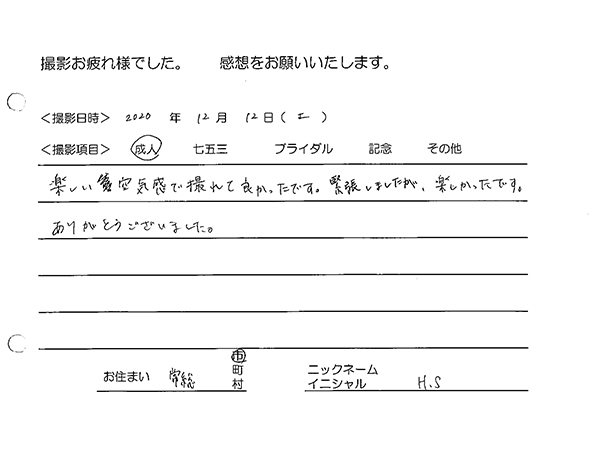 撮影お疲れ様でした。 感想をお願いいたします。
<撮影日時> 2020 年 12 月 12 日 ( 土 )
<撮影項目> 成人 七五三 ブライダル 記念 その他
楽しい空気感で撮れて良かったです。緊張しましたが、楽しかったです。
ありがとうございました。
お住まい 常総 市 町 村 ニックネーム イニシャル H.S